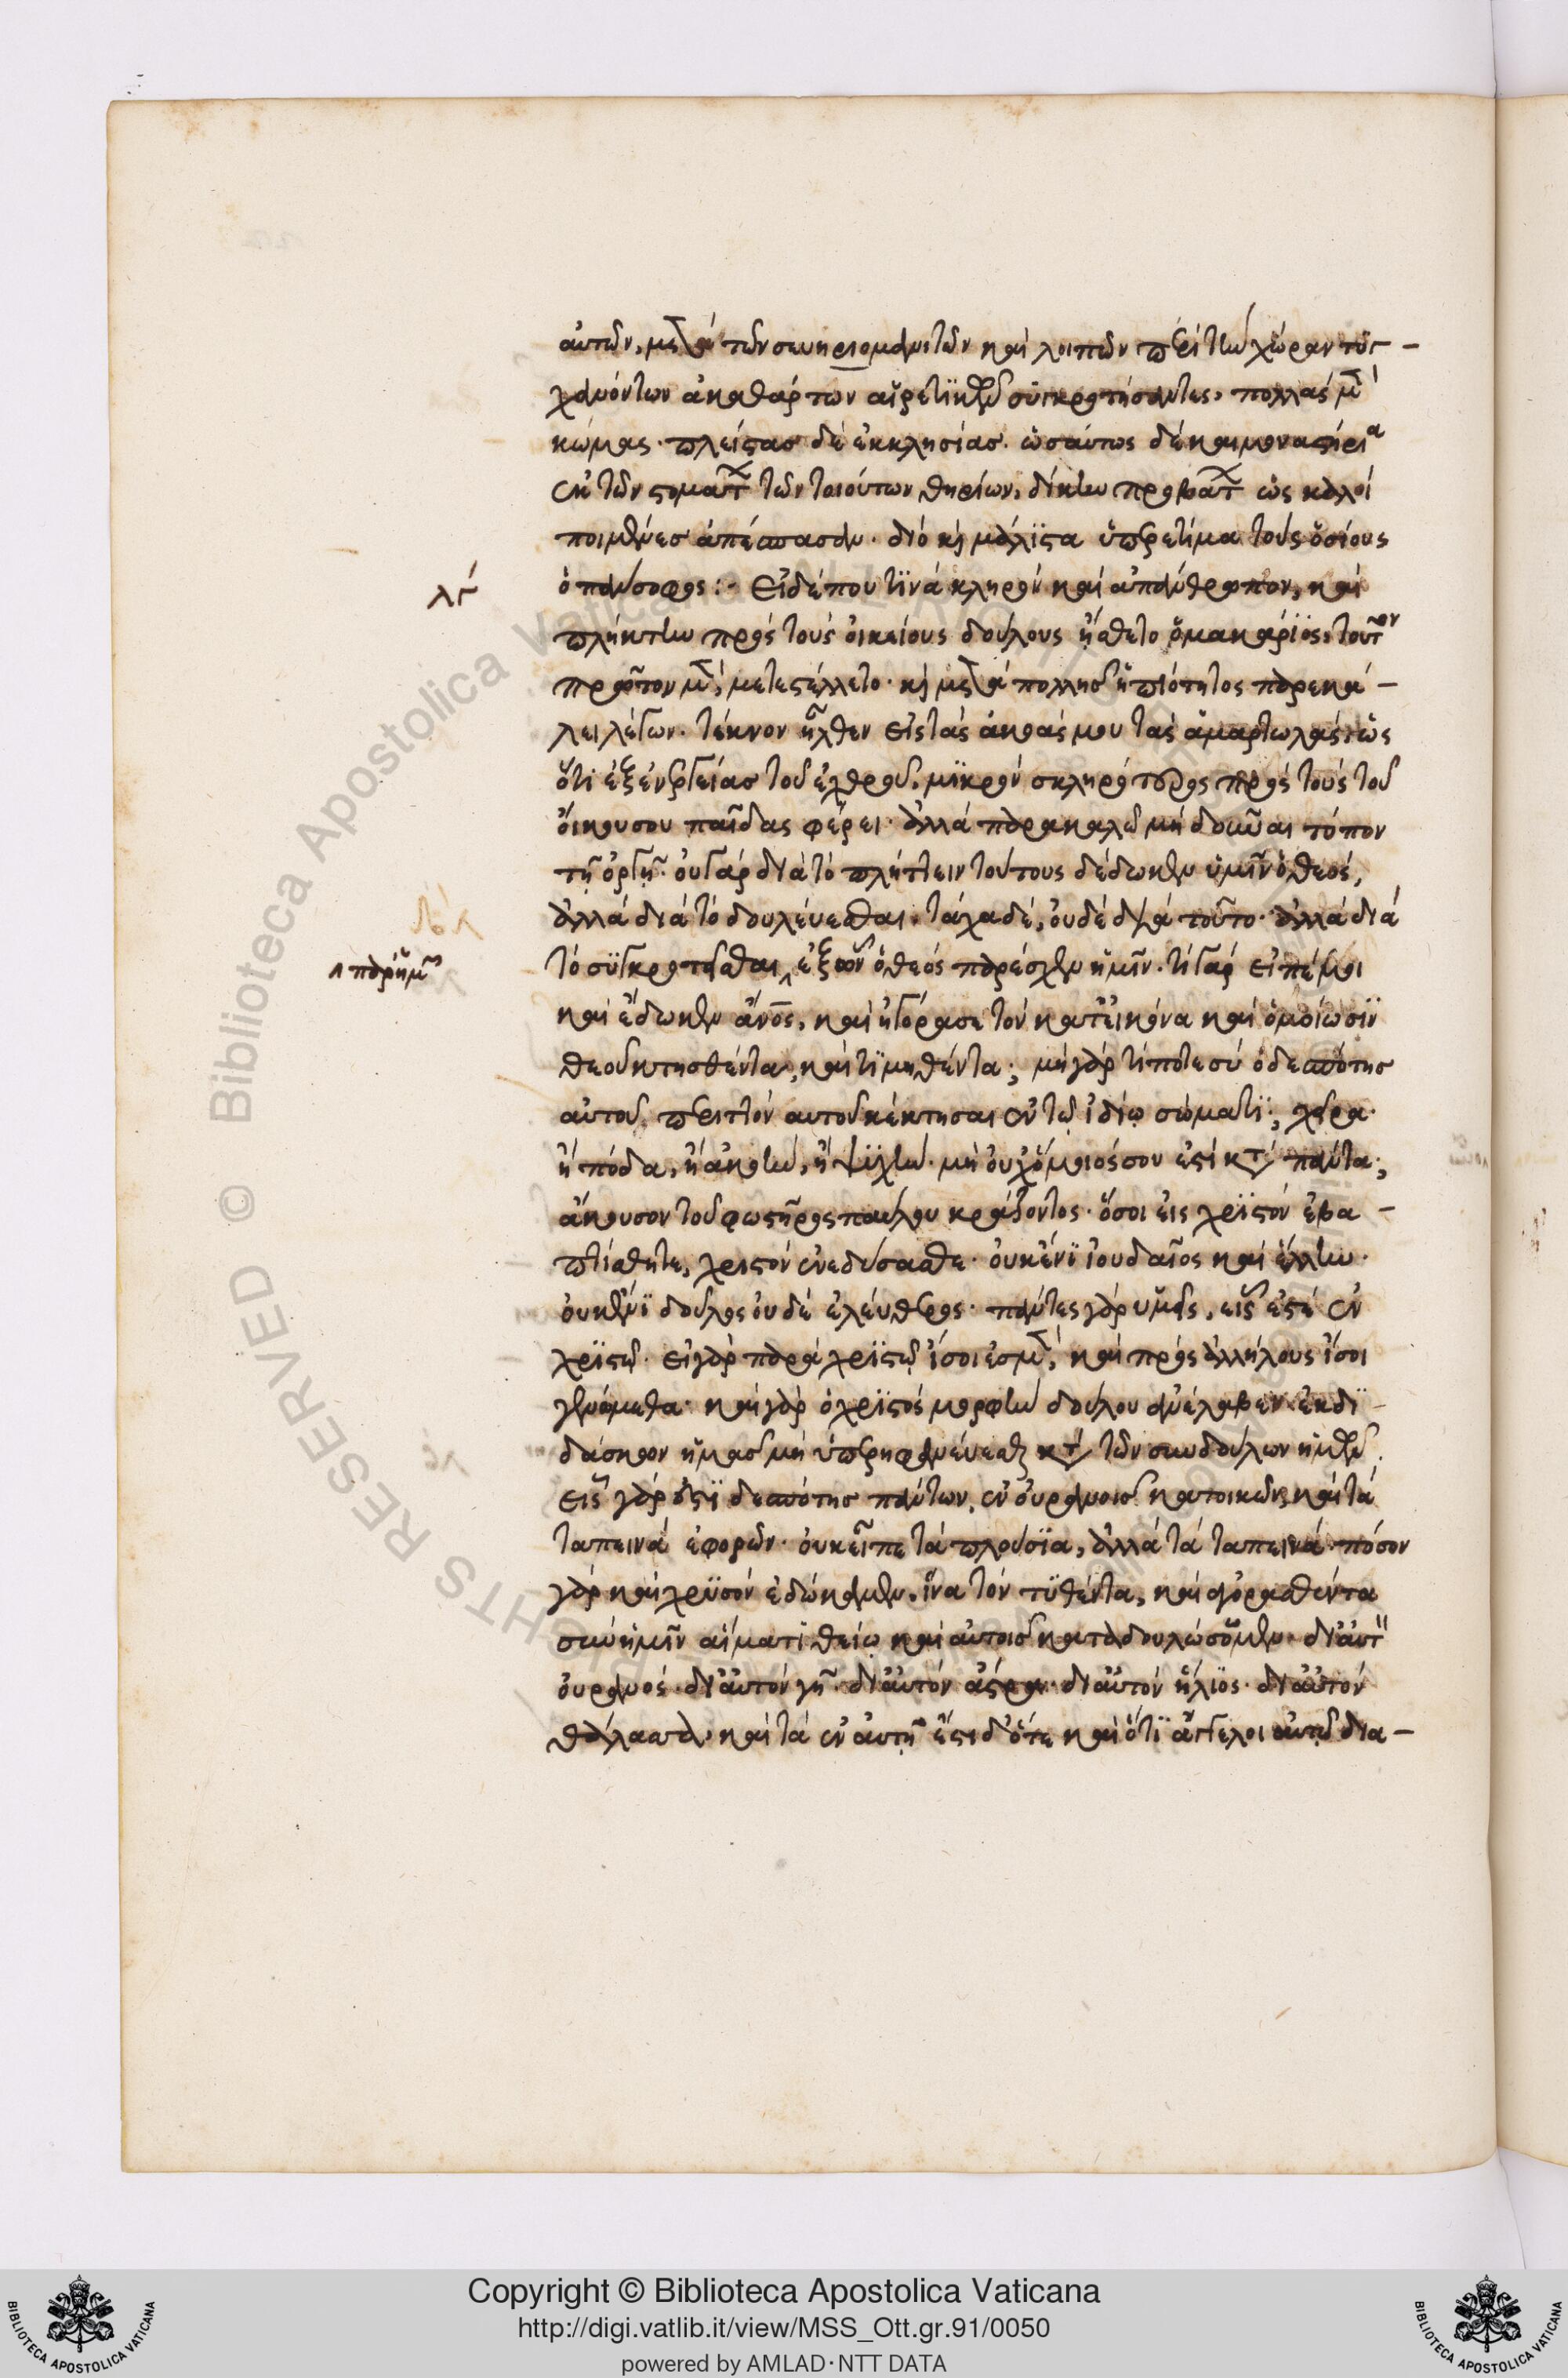 αὐτῶν, μετὰ τῶν σευηριομανιτῶν καὶ λοιπῶν περὶ τὴν χώραν τυγ-
χανόντων ἀκαθάρτων αἱρετϊκῶν συγκροτήσαντες, πολλὰς μὲν
κώμας. πλείστας δὲ ἐκκλησίας. ὡσαύτως δὲ καὶ μοναστήρια
ἐκ τῶν στομάτων τῶν τοιούτων θηρίων, δίκην προβάτων ὡς καλοὶ
ποιμένες ἀπέσπασαν. διὸ καὶ μάλϊστα ὑπερετίμα τοὺς ὁσίους
λγ
ὁ πάνσοφος :- Εἰ δέ που τϊνὰ σκληρὸν καὶ ἀπάνθρωπον, καὶ
πλήκτην πρὸς τοὺς οἰκείους δούλους ᾔσθετο ὁ μακάρϊος, τοῦτον
πρῶτον μὲν, μετεστέλλετο. καὶ μετὰ πολλῆς ἠπιότητος παρεκά-
λει λέγων. τέκνον ἦλθεν εἰς τὰς ἀκοάς μου τὰς ἁμαρτωλάς, ὡς
ὅτι ἐξ ἐνεργείας τοῦ ἐχθροῦ, μϊκρὸν σκληρότερος πρὸς τοὺς τοῦ
οἴκου σου παῖδας φέρει. ἀλλὰ παρακαλῶ μὴ δοῦναι τόπον
τῇ ὀργῇ. οὐ γὰρ διὰ τὸ πλήττειν τούτους δέδωκεν ὑμῖν ὁ θεός,
ἀλλὰ διὰ τὸ δουλεύεσθαι. τάχα δέ, οὐδὲ διὰ τοῦτο. ἀλλὰ διὰ
τὸ συγκροτεῖσθαι ‸ ἐξ ὧν ὁ θεὸς παρέσχεν ἡμῖν. τί γὰρ εἰπέ μοι
‸ παρ' ἡμῶν
καὶ ἔδωκεν ἄνος, καὶ ἠγόρασε τὸν κατ' εἰκόνα καὶ ὁμοίωσϊν
θεοῦ κτησθέντα, καὶ τϊμηθέντα; μὴ γὰρ τί ποτε σὺ ὁ δεσπότης
αὐτοῦ, περιττὸν αὐτοῦ κέκτησαι ἐν τῷ ἰδίῳ σώματϊ; χεῖρα.
ἢ πόδα, ἢ ἀκοὴν, ἢ ψϋχὴν. μὴ οὐχ ὅμοιός σου ἐστὶ κατὰ πάντα;
ἄκουσον τοῦ φωστῆρος παύλου κράζοντος. ὅσοι εἰς χρϊστὸν ἐβα-
πτίσθητε, χριστὸν ἐνεδύσασθε. οὐκ ἔνϊ ἰουδαῖος καὶ ἕλλην.
οὐκ ἔνϊ δοῦλος οὐδὲ ἐλεύθερος. πάντες γὰρ ὑμεῖς, εἷς ἐστὲ ἐν
χρϊστῷ. εἰ γὰρ παρὰ χρϊστῷ ἴσοι ἐσμὲν, καὶ πρὸς ἀλλήλους ἴσοι
γενώμεθα. καὶ γὰρ ὁ χρϊστὸς μορφὴν δούλου ἀνέλαβεν ἐκδϊ-
δάσκων ἡμᾶς μὴ ὑπερηφανεύεσθαι κατὰ τῶν συνδούλων ἡμῶν.
εἷς γὰρ ἐστϊ δεσπότης πάντων, ἐν οὐρανοῖς κατοικῶν, καὶ τὰ
ταπεινὰ ἐφορῶν. οὐκ εἶπε τὰ πλούσϊα, ἀλλὰ τὰ ταπεινά. πόσον
γὰρ καὶ χρϋσὸν ἐδώκαμεν, ἵνα τὸν τϋθέντα, καὶ ἀγορασθέντα
σὺν ἡμῖν αἵματι θείῳ καὶ αὐτοῖς καταδουλώσομεν. δι' αὐτὸν
οὐρανός. δι' αὐτὸν γῆ. δι' αὐτὸν ἄστρα. δι' αὐτὸν ἥλϊος. δι' αὐτὸν
θάλασσα, καὶ τὰ ἐν αὐτῇ ἔστι δ' ὅτε καὶ ὅτϊ ἄγγελοι αὐτῷ δια-
Copyright © Biblioteca Apostolica Vaticana
http://digi.vatlib.it/view/MSS_Ott.gr.91/0050
powered by AMLAD·NTT DATA